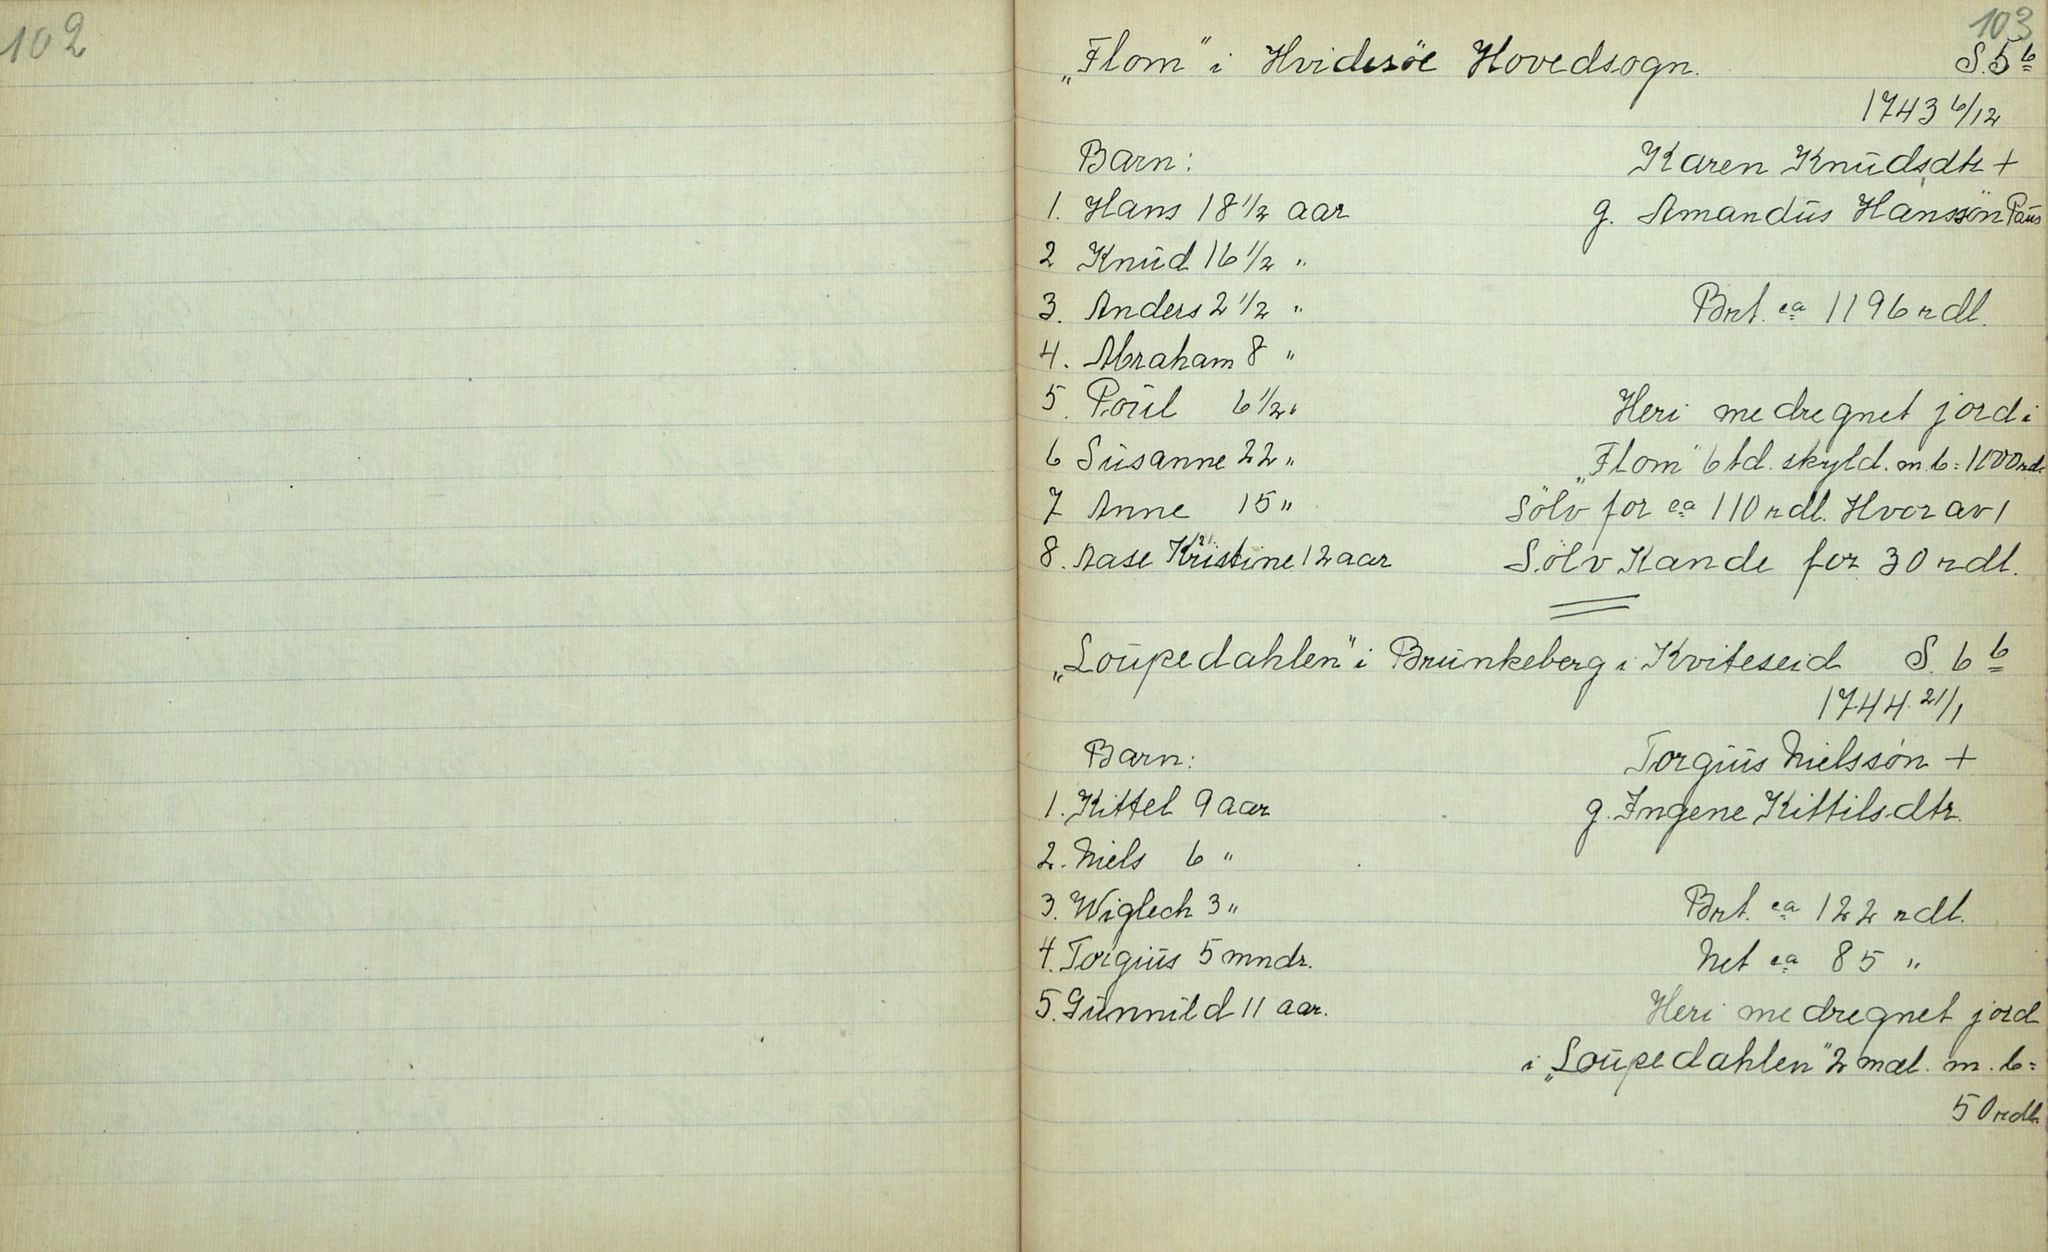 102
103
„Flom" i Hvidesöe Hovedsogn. S. 5 b
1743 6/12
Barn: Karen Knudsdtr +
1. Hans 18 1/2 aar g. Amandus Hanssön Paus
2 Knud 16 1/2 "
3. Anders 2 1/2 " Brt. ca 1196 rdl.
4. Abraham 8 "
5. Poul 6 1/2 " Heri medregnet jord i
6 Susanne 22 " „Flom" 6 td. skyld. m. b = 1000 rdl.
7 Anne 15 " Sölv for ca 110 rdl. Hvorav 1
8. Aase Kristine 12 aar Sölv Kande for 30 rdl.
„Loupedahlen" i Brunkeberg i Kviteseid S. 6 b
1744 21/1
Barn: Torgius Nielssön +
1. Kittel 9 aar g. Ingene Kittilsdtr.
2. Niels 6 "
3. Wiglech 3 " Brt. ca 122 rdl.
4. Torgius 5 mndr. Net ca 85 "
5. Gunnild 11 aar. Heri medregnet jord
i „Loupedahlen" 2 mæl. m. b =
50 rdl.